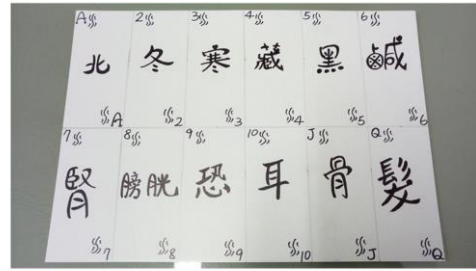 A 2 3 4 5 6
北 冬 寒 藏 黑 鹹
A 2 3 4 5 6
7 8 9 10 J Q
腎 膀胱 恐 耳 骨 髮
7 8 9 10 J Q